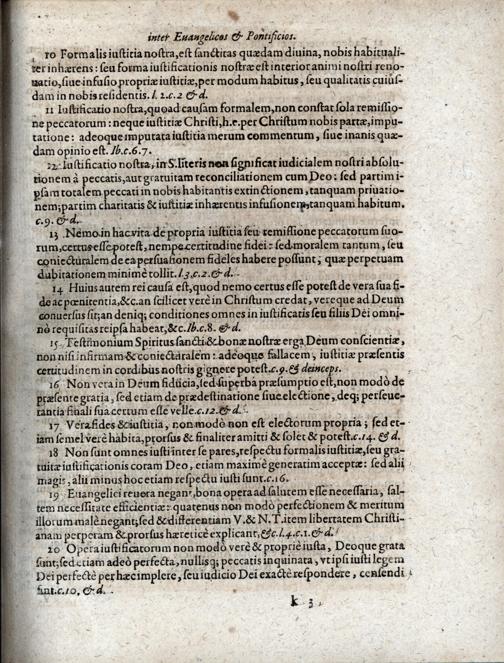 inter Euangelicos & Pontificios.
10 Formalis iustitia nostra, est sanctitas quædam diuina, nobis habituali-
ter inhærens: seu forma iustificationis nostræ est interior animi nostri reno-
uatio, siue infusio propriæ iustitiæ, per modum habitus, seu qualitatis cuius-
dam in nobis residentis. l. 2. c. 2 & d.
11 Iustificatio nostra, quoad causam formalem, non constat sola remissio-
ne peccatorum: neque iustitiæ Christi, h.e. per Christum nobis partæ, impu-
tatione: adeoque imputata iustitia merum commentum, siue inanis quæ-
dam opinio est. lb. c. 6. 7.
12. Iustificatio nostra, in S. literis non significat iudicialem nostri absolu-
tionem à peccatis, aut gratuitam reconciliationem cum Deo: sed partim i-
psam totalem peccati in nobis habitantis extinctionem, tanquam priuatio-
nem; partim charitatis & iustitiæ inhærentis infusionem, tanquam habitum.
c. 9. & d.
13 Nemo in hac vita de propria iustitia seu remissione peccatorum suo-
rum, certus esse potest, nempe certitudine fidei: sed moralem tantum, seu
coniecturalem de ea persuasionem fideles habere possunt; quæ perpetuam
dubitationem minimè tollit. l. 3. c. 2. & d.
14 Huius autem rei causa est, quod nemo certus esse potest de vera sua fi-
de ac pœnitentia, &c. an scilicet verè in Christum credat, vereque ad Deum
conuersus sit; an deniq; conditiones omnes in iustificatis seu filiis Dei omni-
nò requisitas reipsa habeat, &c. lb. c. 8. & d.
15 Testimonium Spiritus sancti & bonæ nostræ erga Deum conscientiæ,
non nisi infirmam & coniecturalem: adeoque fallacem, iustitiæ præsentis
certitudinem in cordibus nostris gignere potest. c. 9. & deinceps.
16 Non vera in Deum fiducia, sed superba præsumptio est, non modò de
præsente gratia, sed etiam de prædestinatione siue electione, deq; perseue-
rantia finali sua certum esse velle. c. 12. & d.
17 Vera fides & iustitia, non modò non est electorum propria; sed et-
iam semel verè habita, prorsus & finaliter amitti & solet & potest. c. 14. & d.
18 Non sunt omnes iusti inter se pares, respectu formalis iustitiæ, seu gra-
tuitæ iustificationis coram Deo, etiam maximè generatim acceptæ: sed alii
magis, alii minus hoc etiam respectu iusti sunt. c. 16.
19 Euangelici reuera negant, bona opera ad salutem esse necessaria, sal-
tem necessitate efficientiæ: quatenus non modò perfectionem & meritum
illorum malè negant; sed & differentiam V. & N. T. item libertatem Christi-
anam perperam & prorsus hæreticè explicant, &c. l. 4. c. 1. & d.
20 Opera iustificatorum non modò verè & propriè iusta, Deoque grata
sunt; sed etiam adeò perfecta, nullisq; peccatis inquinata, vt ipsi iusti legem
Dei perfectè per hæc implere, seu iudicio Dei exactè respondere, censendi
sint. c. 10. & d.
k 3